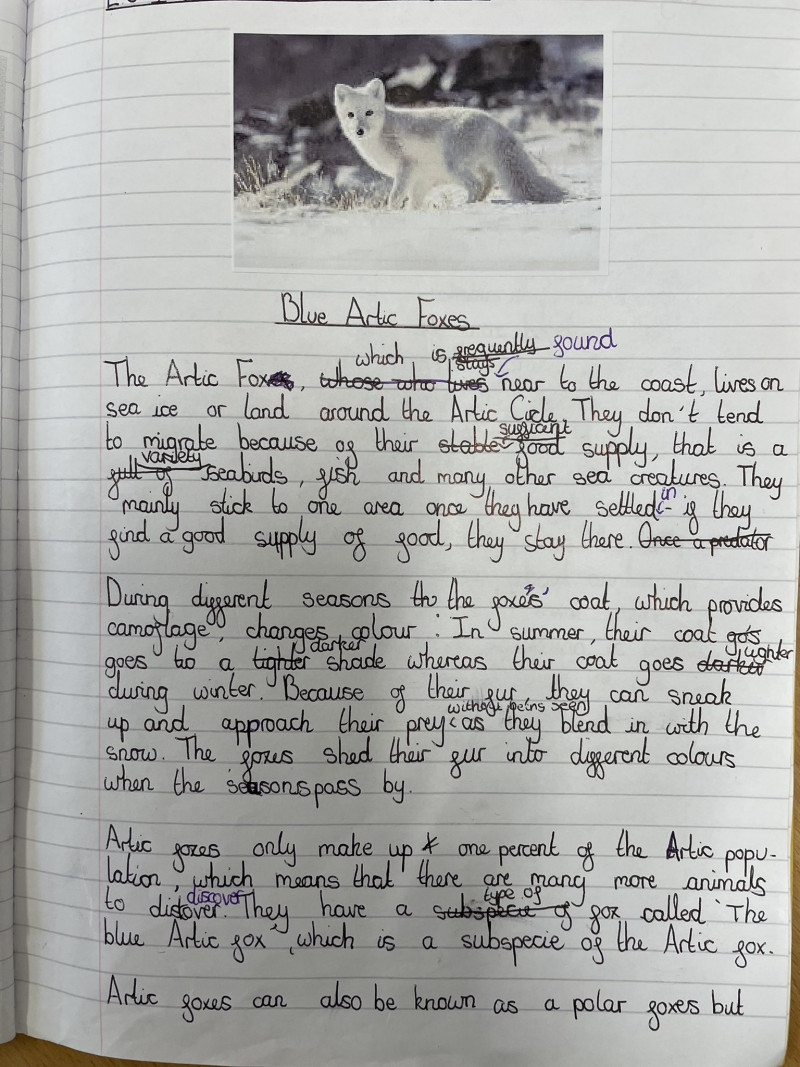 Blue Artic Foxes
which is frequently found
stays
The Artic Foxes, whose who lives near to the coast, lives on
sea ice or land around the Artic Circle. They don't tend
sufficient
to migrate because of their stable food supply, that is a
variety
full of seabirds, fish and many other sea creatures. They
in
mainly stick to one area once they have settled - if they
find a good supply of food, they stay there. Once a predator
During different seasons th the foxes' coat, which provides
camoflage, changes colour : In summer, their coat gos
darker lighter
goes to a lighter shade whereas their coat goes darker
during winter. Because of their fur, they can sneak
without being seen
up and approach their prey as they blend in with the
snow. The foxes shed their fur into different colours
when the seasons pass by.
Artic foxes only make up one percent of the Artic popu-
lation, which means that there are many more animals
discover type of
to discover. They have a subspecie of fox called 'The
blue Artic fox', which is a subspecie of the Artic fox.
Artic foxes can also be known as a polar foxes but